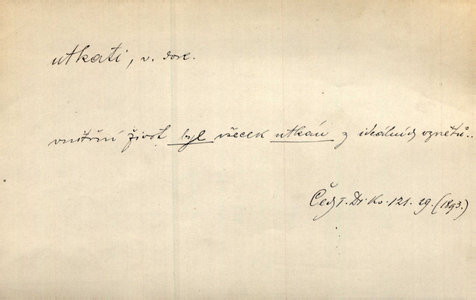 utkati, v. dok.
vnitřní život byl všecek utkán z ideálních vznětů..
Čech. Di Ko. 121. 19. (1893.)